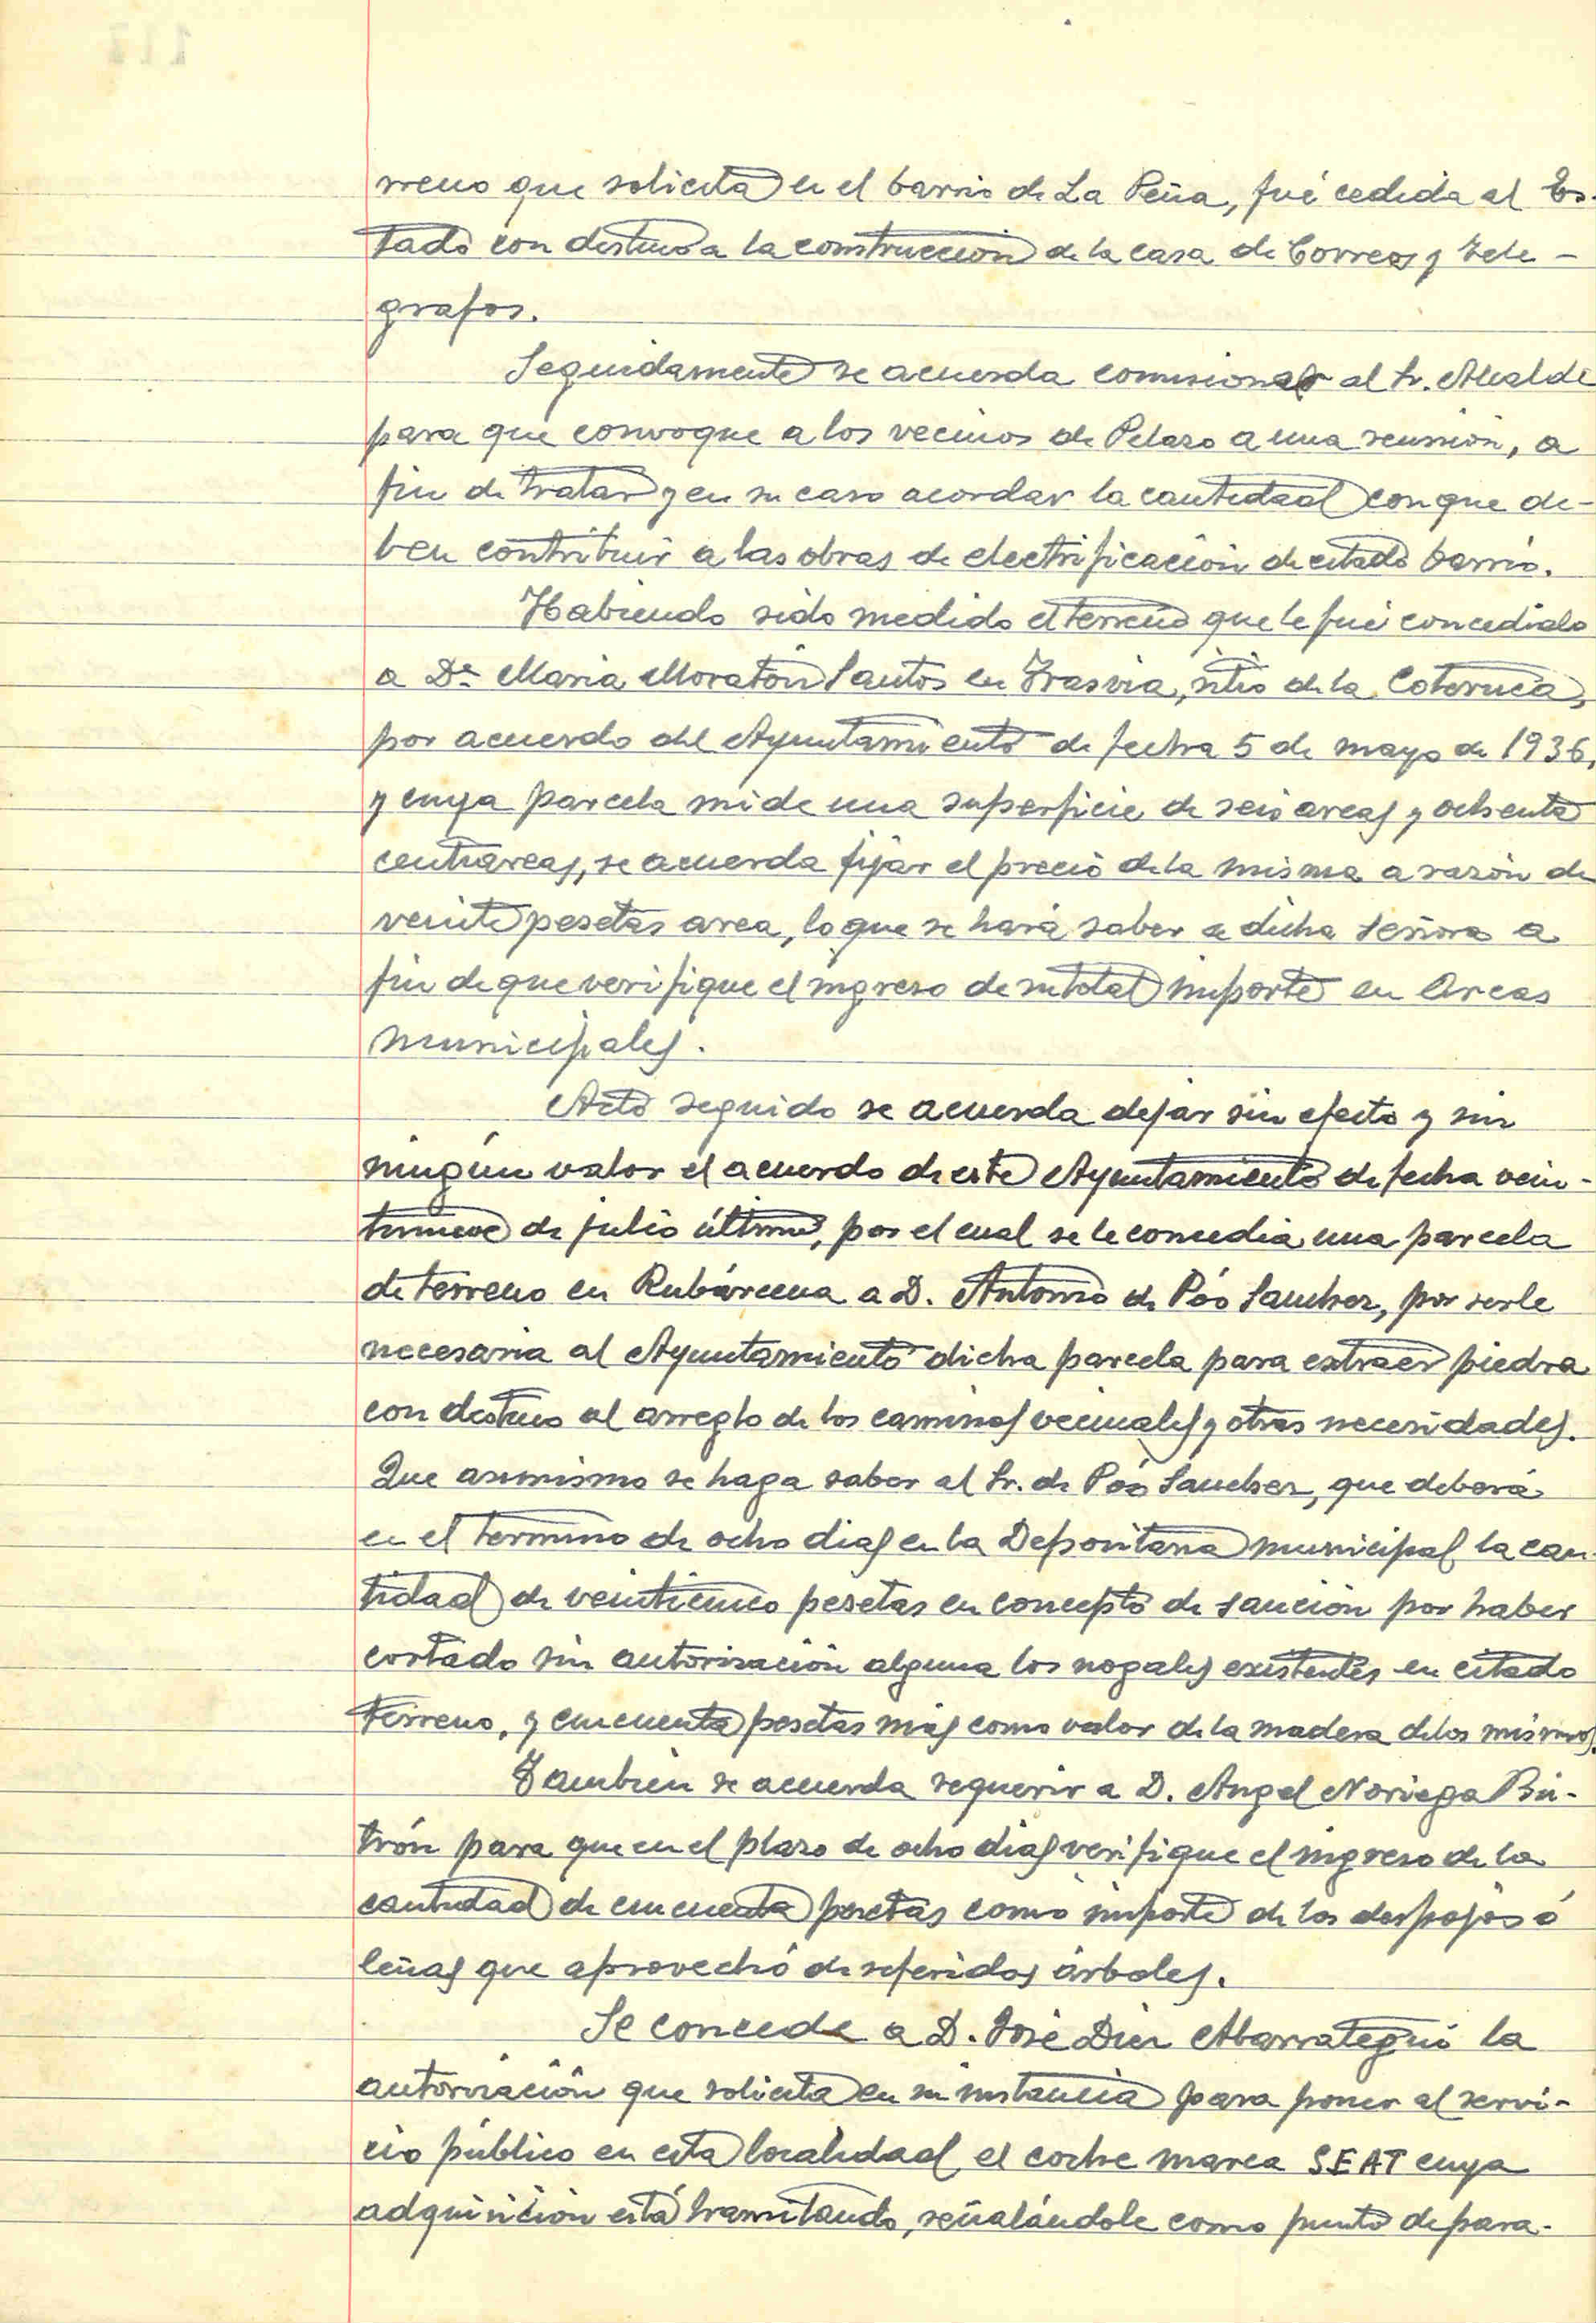 rreno que solicita en el barrio de La Peña, fué cedida al Es-
tado con destino a la construccion de la casa de Correos y Tele-
grafos.
Seguidamente se acuerda comisionar al Sr. Alcalde
para que convoque a los vecinos de Pelazo a una reunión, a
fin de tratar y en su caso acordar la cantidad con que de-
ben contribuir a las obras de electrificación de citado barrio.
Habiendo sido medido el terreno que le fué concedido
a Dª Maria Moraton Santos en Trasvia, sitio de la Coteruca,
por acuerdo del Ayuntamiento de fecha 5 de mayo de 1936,
y cuya parcela mide una superficie de seis areas y ochenta
centiareas, se acuerda fijar el precio de la misma a razón de
veinte pesetas area, lo que se hará saber a dicha señora a
fin de que verifique el ingreso de su total importe en Arcas
municipales.
Acto seguido se acuerda dejar sin efecto y sin
ningún valor el acuerdo de este Ayuntamiento de fecha vein-
tinueve de julio último, por el cual se le concedia una parcela
de terreno en Rubárcena a D. Antonio de Póo Sanchez, por serle
necesaria al Ayuntamiento dicha parcela para extraer piedra
con destino al arreglo de los caminos vecinales y otras necesidades.
Que asimismo se haga saber al Sr. de Póo Sanchez, que deberá
en el termino de ocho dias en la Depositaria municipal la can-
tidad de veinticinco pesetas en concepto de sanción por haber
cortado sin autorización alguna los nogales existentes en citado
terreno, y cincuenta pesetas más como valor de la madera de los mismos.
Tambien se acuerda requerir a D. Angel Noriega Bu-
trón para que en el plazo de ocho dias verifique el ingreso de la
cantidad de cincuenta pesetas como importe de los despojos ó
leñas que aprovechó de referidos árboles.
Se concede a D. José Diez Abarrategui la
autorización que solicita en su instancia para poner al servi-
cio público en esta localidad el coche marca SEAT cuya
adquisición está tramitando, señalándole como punto de para-